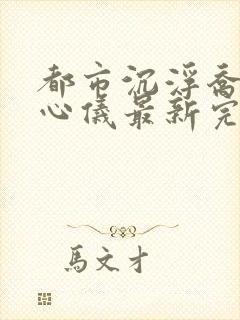 都市沉浮喬
心儀最新完
馬文才